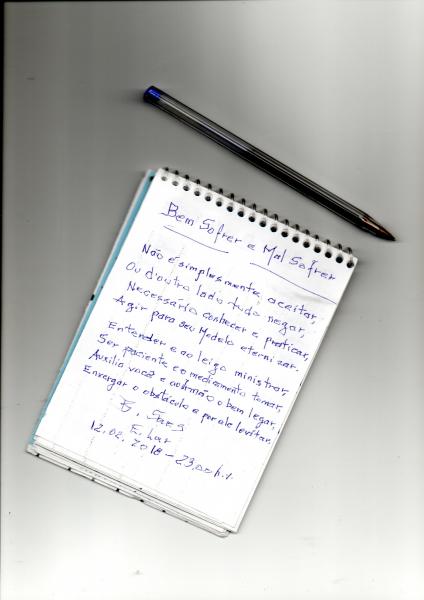 Bem Sofrer e Mal Sofrer
Não é simplesmente, aceitar,
Ou d'outro lado tudo negar,
Necessário conhecer e, praticar,
Agir para seu Modelo eternizar.
Entender e ao leigo ministrar,
Ser paciente e o medicamento tomar,
Auxilia você e ao irmão o bem legar,
Enxergar o obstáculo e por ele levitar.
E. Lar
12.02.2018 - 23,00 h.